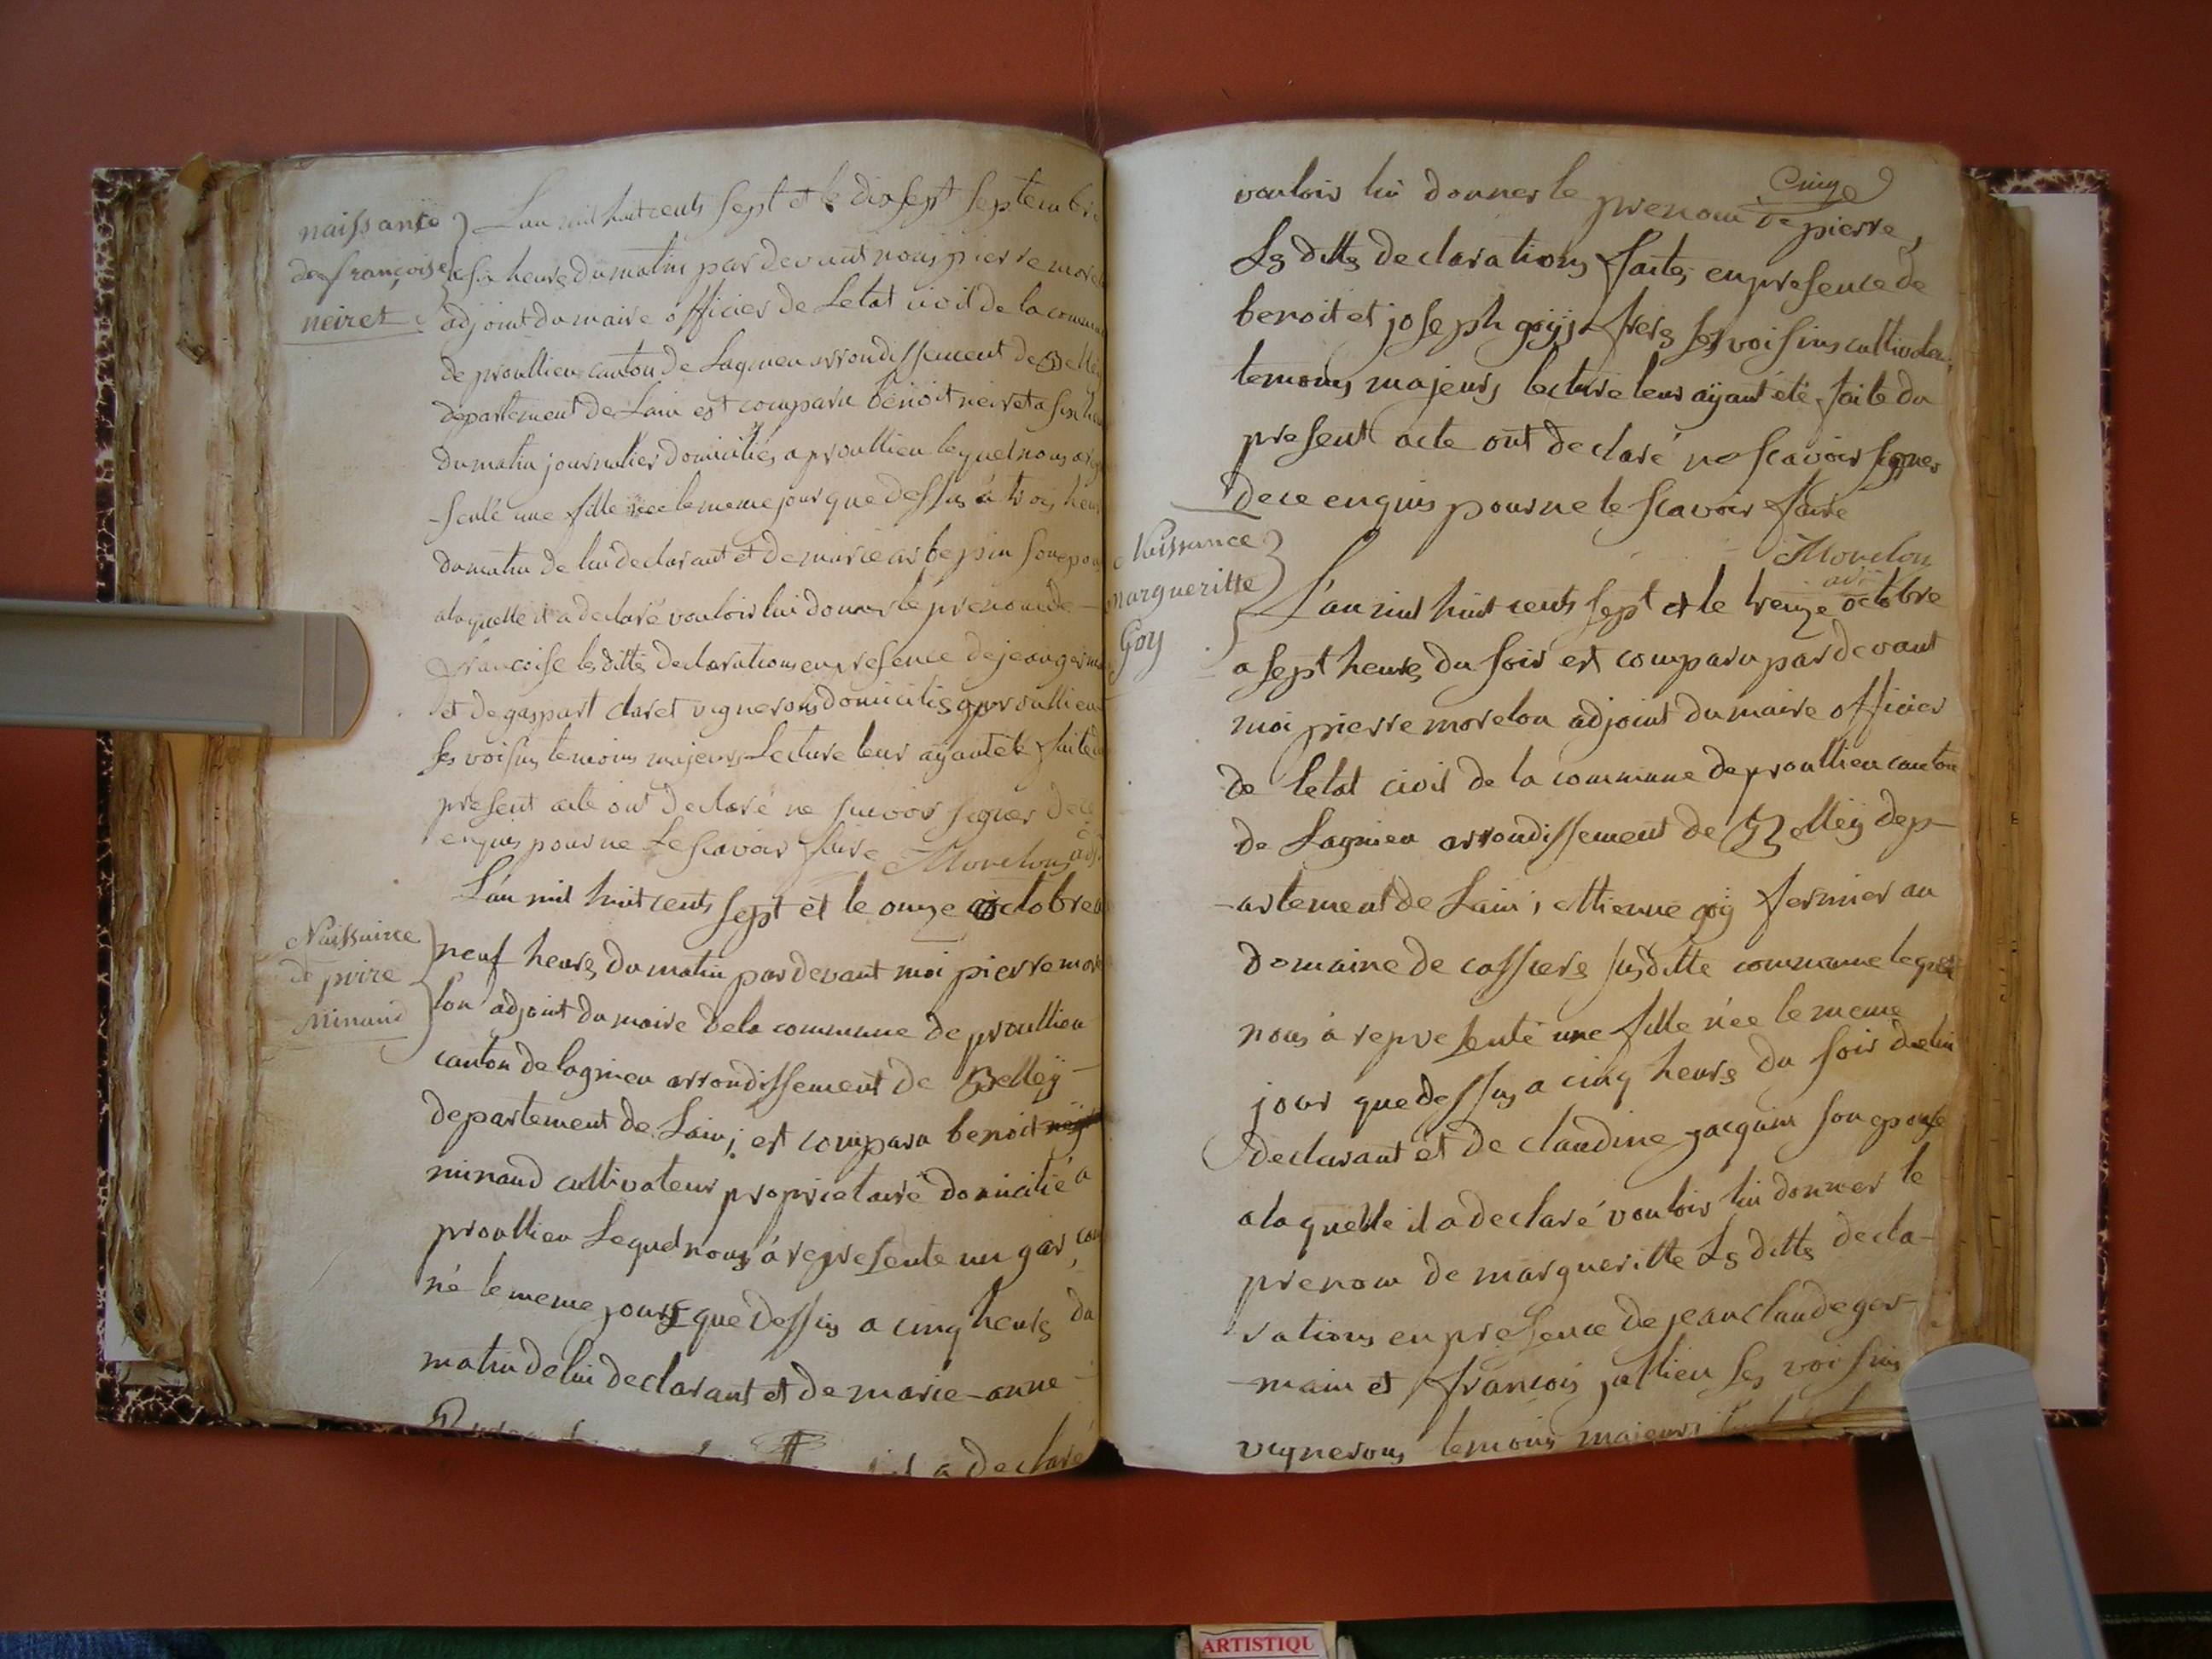 naissance
de françoise
neiret
L'an mil huit cents sept et le dix sept septembre
a six heures du matin par devant nous pierre morel
adjoint du maire officier de Letat civil de la commu
de proullieu canton de Lagnieu arrondissement de Belley
departement de Lain est comparu benoit neiret a six heu
du matin journalier domicilié a proullieu lequel nous a rep
-senté une fille née le meme jour que dessus a trois heur
du matin de lui declarant et de marie son epou
a laquelle il a declaré vouloir lui donner le prenom de
francoise les dittes declarations en presence de jean germa
et de gaspart claret vignerons domiciliés a proullieu
ses voisins temoins majeurs Lecture leur ayant été faite du
present acte ont declaré ne scavoir signer de ce
enquis pour ne Le scavoir faire Morelon adj.
Naissaince
de piére
Minand
L'an mil huit cents sept et le onze octobre a
neuf heures du matin pardevant moi pierre more
lon adjoint du maire de la commune de proullieu
canton de lagnieu arrondissement de Belleÿ -
departement de Lain; est comparu benoit
minand cultivateur proprietaire domicilié a
proullieu Lequel nous à represente un garcon
né le meme jour que dessus a cinq heures du
matin de lui declarant et de marie-anne -
il a declaré
Cinq
vouloir lui donner le prenom de pierre,
Ls dittes declarations faites en presence de
benoit et joseph goÿ freres ses voisins cultivateu
temoins majeurs lecture leur aÿant été faite du
present acte ont declaré ne scavoir signer
de ce enquis pour ne le scavoir faire
Morelon
adj
Naissance
margueritte
Goy
L'an mil huit cents sept et le treize octobre
a sept heures du soir est comparu par devant
moi pierre morelon adjoint du maire officier
de letat civil de la commune de proullieu canton
de Lagnieu arrondissement de Belleÿ dep-
-artement de Lain, ettienne goÿ fermier au
domaine de cassiere susditte commune lequel
nous à representé une fille née le meme
jour que dessus a cinq heures du soir de lui
declarant et de claudine jacquin son epouse
a laquelle il a declaré vouloir lui donner le
prenom de margueritte Ls dittes decla-
rations en presence de jean claude ger-
-main et francois jullien ses voisins
vignerons temoins majeurs
ARTISTIQU